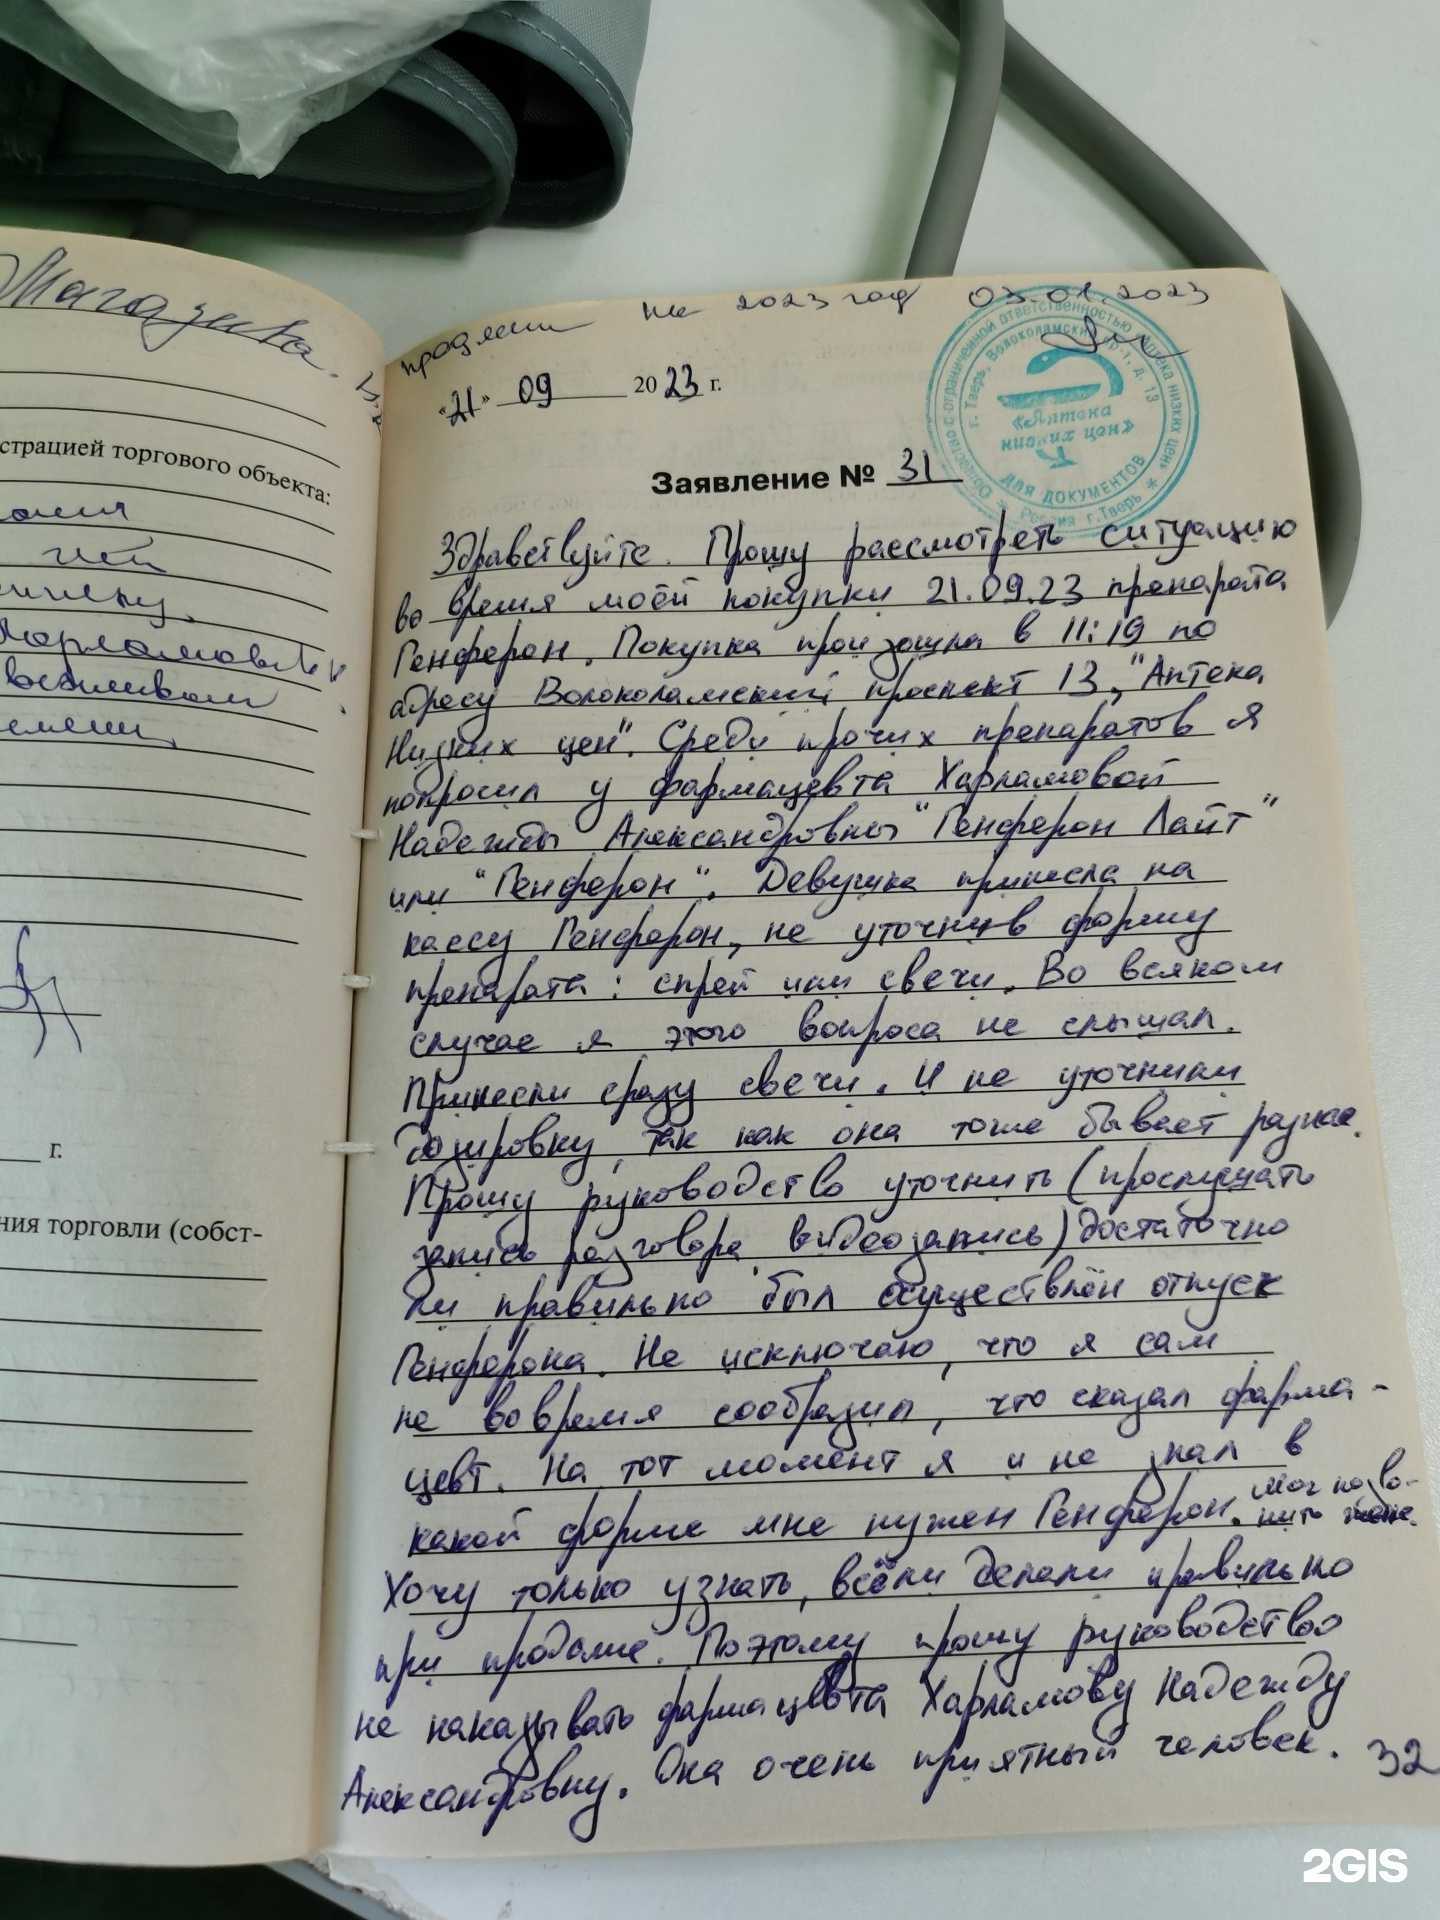 Магазина.
страцией торгового объекта:
г.
ния торговли (собст-
продлен на 2023 год 03.01.2023
«21» 09 2023 г.
Общество с ограниченной ответственностью «Аптека низких цен»
г. Тверь, Волоколамский пр-т, д. 13
«Аптека
низких цен»
ДЛЯ ДОКУМЕНТОВ
Россия г.Тверь
Заявление № 31
Здравствуйте. Прошу рассмотреть ситуацию
во время моей покупки 21.09.23 препарата
Генферон. Покупка произошла в 11:19 по
адресу Волоколамский проспект 13, "Аптека
Низких цен". Среди прочих препаратов я
попросил у фармацевта Харламовой
Надежды Александровны "Генферон Лайт"
или "Генферон". Девушка принесла на
кассу Генферон, не уточнив форму
препарата: спрей или свечи. Во всяком
случае я этого вопроса не слышал.
Принесли сразу свечи. И не уточнили
дозировку, так как она тоже бывает разная.
Прошу руководство уточнить (прослушать
запись разговора, видеозапись) достаточно
ли правильно был осуществлён отпуск
Генферона. Не исключаю, что я сам
не вовремя сообразил, что сказал фарма-
цевт. На тот момент я и не знал в
какой форме мне нужен Генферон. Мог позво-
нить жене.
Хочу только узнать, всё ли делали правильно
при продаже. Поэтому прошу руководство
не наказывать фармацевта Харламову Надежду
Александровну. Она очень приятный человек.
32
2GIS